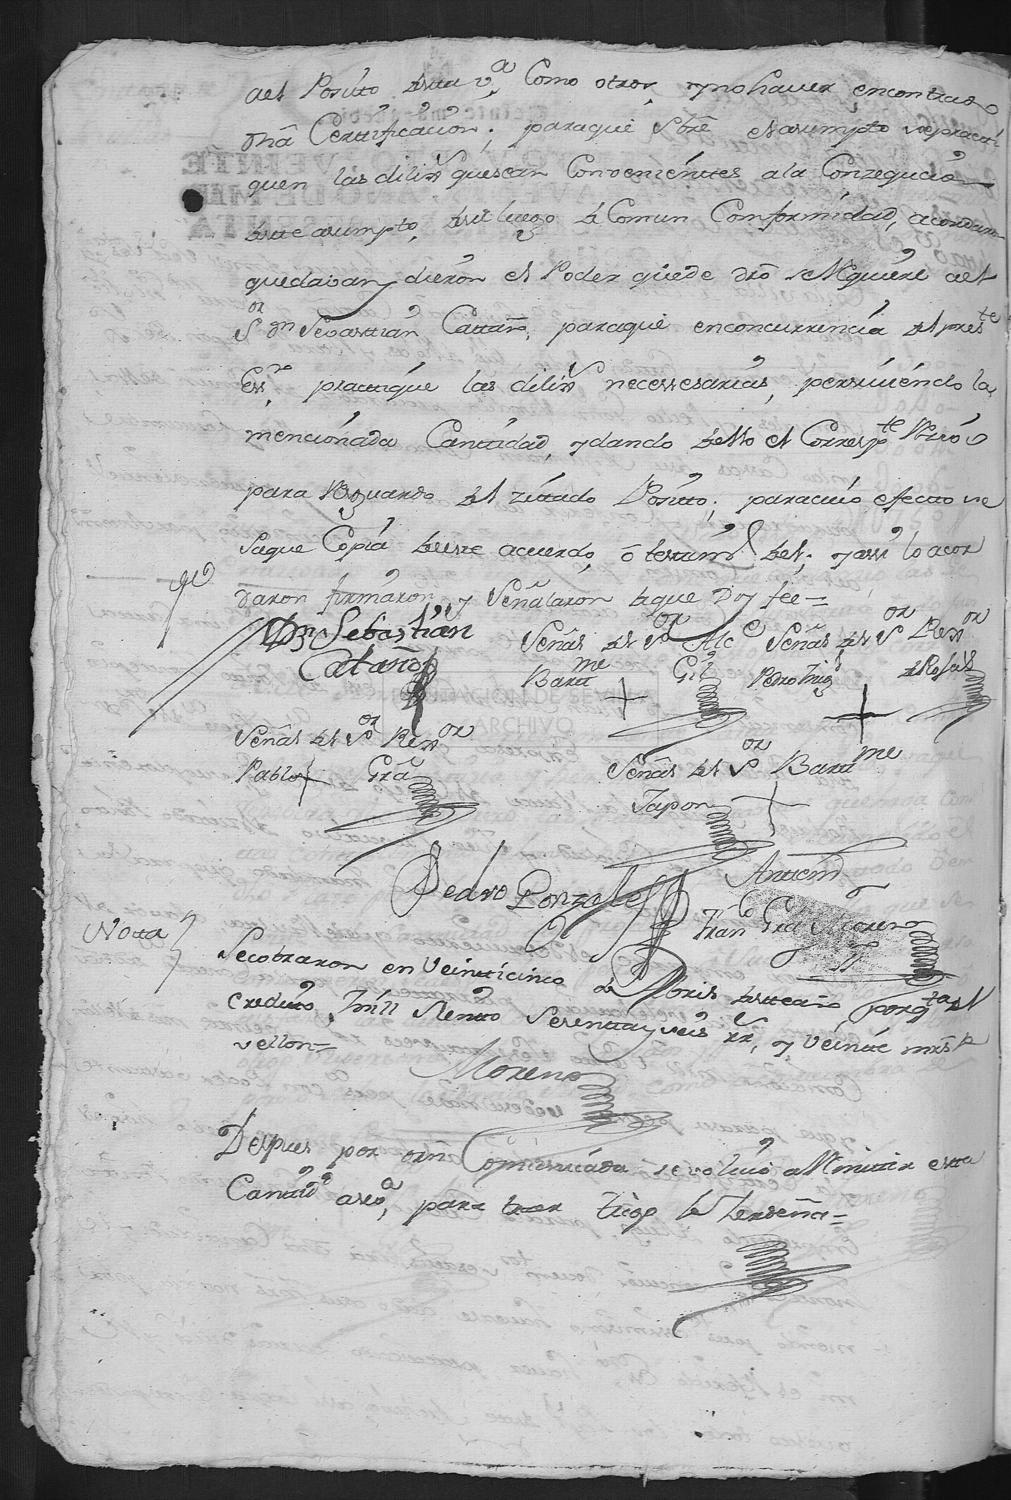 del Posito desta v.ª como otros, y no haver encontrado
dha Certificacion; para que sbre el asumpto se practi
quen las dilixs que sean Convenientes a la Conzegucion
deste asumpto, desde luego de Comun Conformidad, acordaron
quedavan y dieron el Poder que de dro se Requiere al
Sor dn Sebastian Cattaño, para que en concurrencia del preste
Essno, practique las dilixs necessesarias, perciviendo la
mencionada Cantidad, y dando dello el Correspte Recivo
para Resguardo del zitado Posito; para cuio efecto se
saque Copia deeste acuerdo, o testimo del; y assi lo acor
daron firmaron, y Señalaron de que Doy fee=
Dn Sebastian
Cataño
Señal del Sor Alce
Barme + Gil
Señal del Sor Rexor
Pedro Migl + de Rosas
Señal del Sor Rexor
Pablo + Gra
Señal del Sor Barme
Japon +
Pedro Gonzales
Antemi
Franco Gra Moreno
Nota
Se cobraron en Veinticinco de deste año por qta del
credito, mill Siento Sesenta y seis rrs, y veinte mrs de
vellon=
Moreno
Despues por orn Comunicada se volvió a Remitir esta
Cantidd a seva, para traer trigo de Zerdeña=